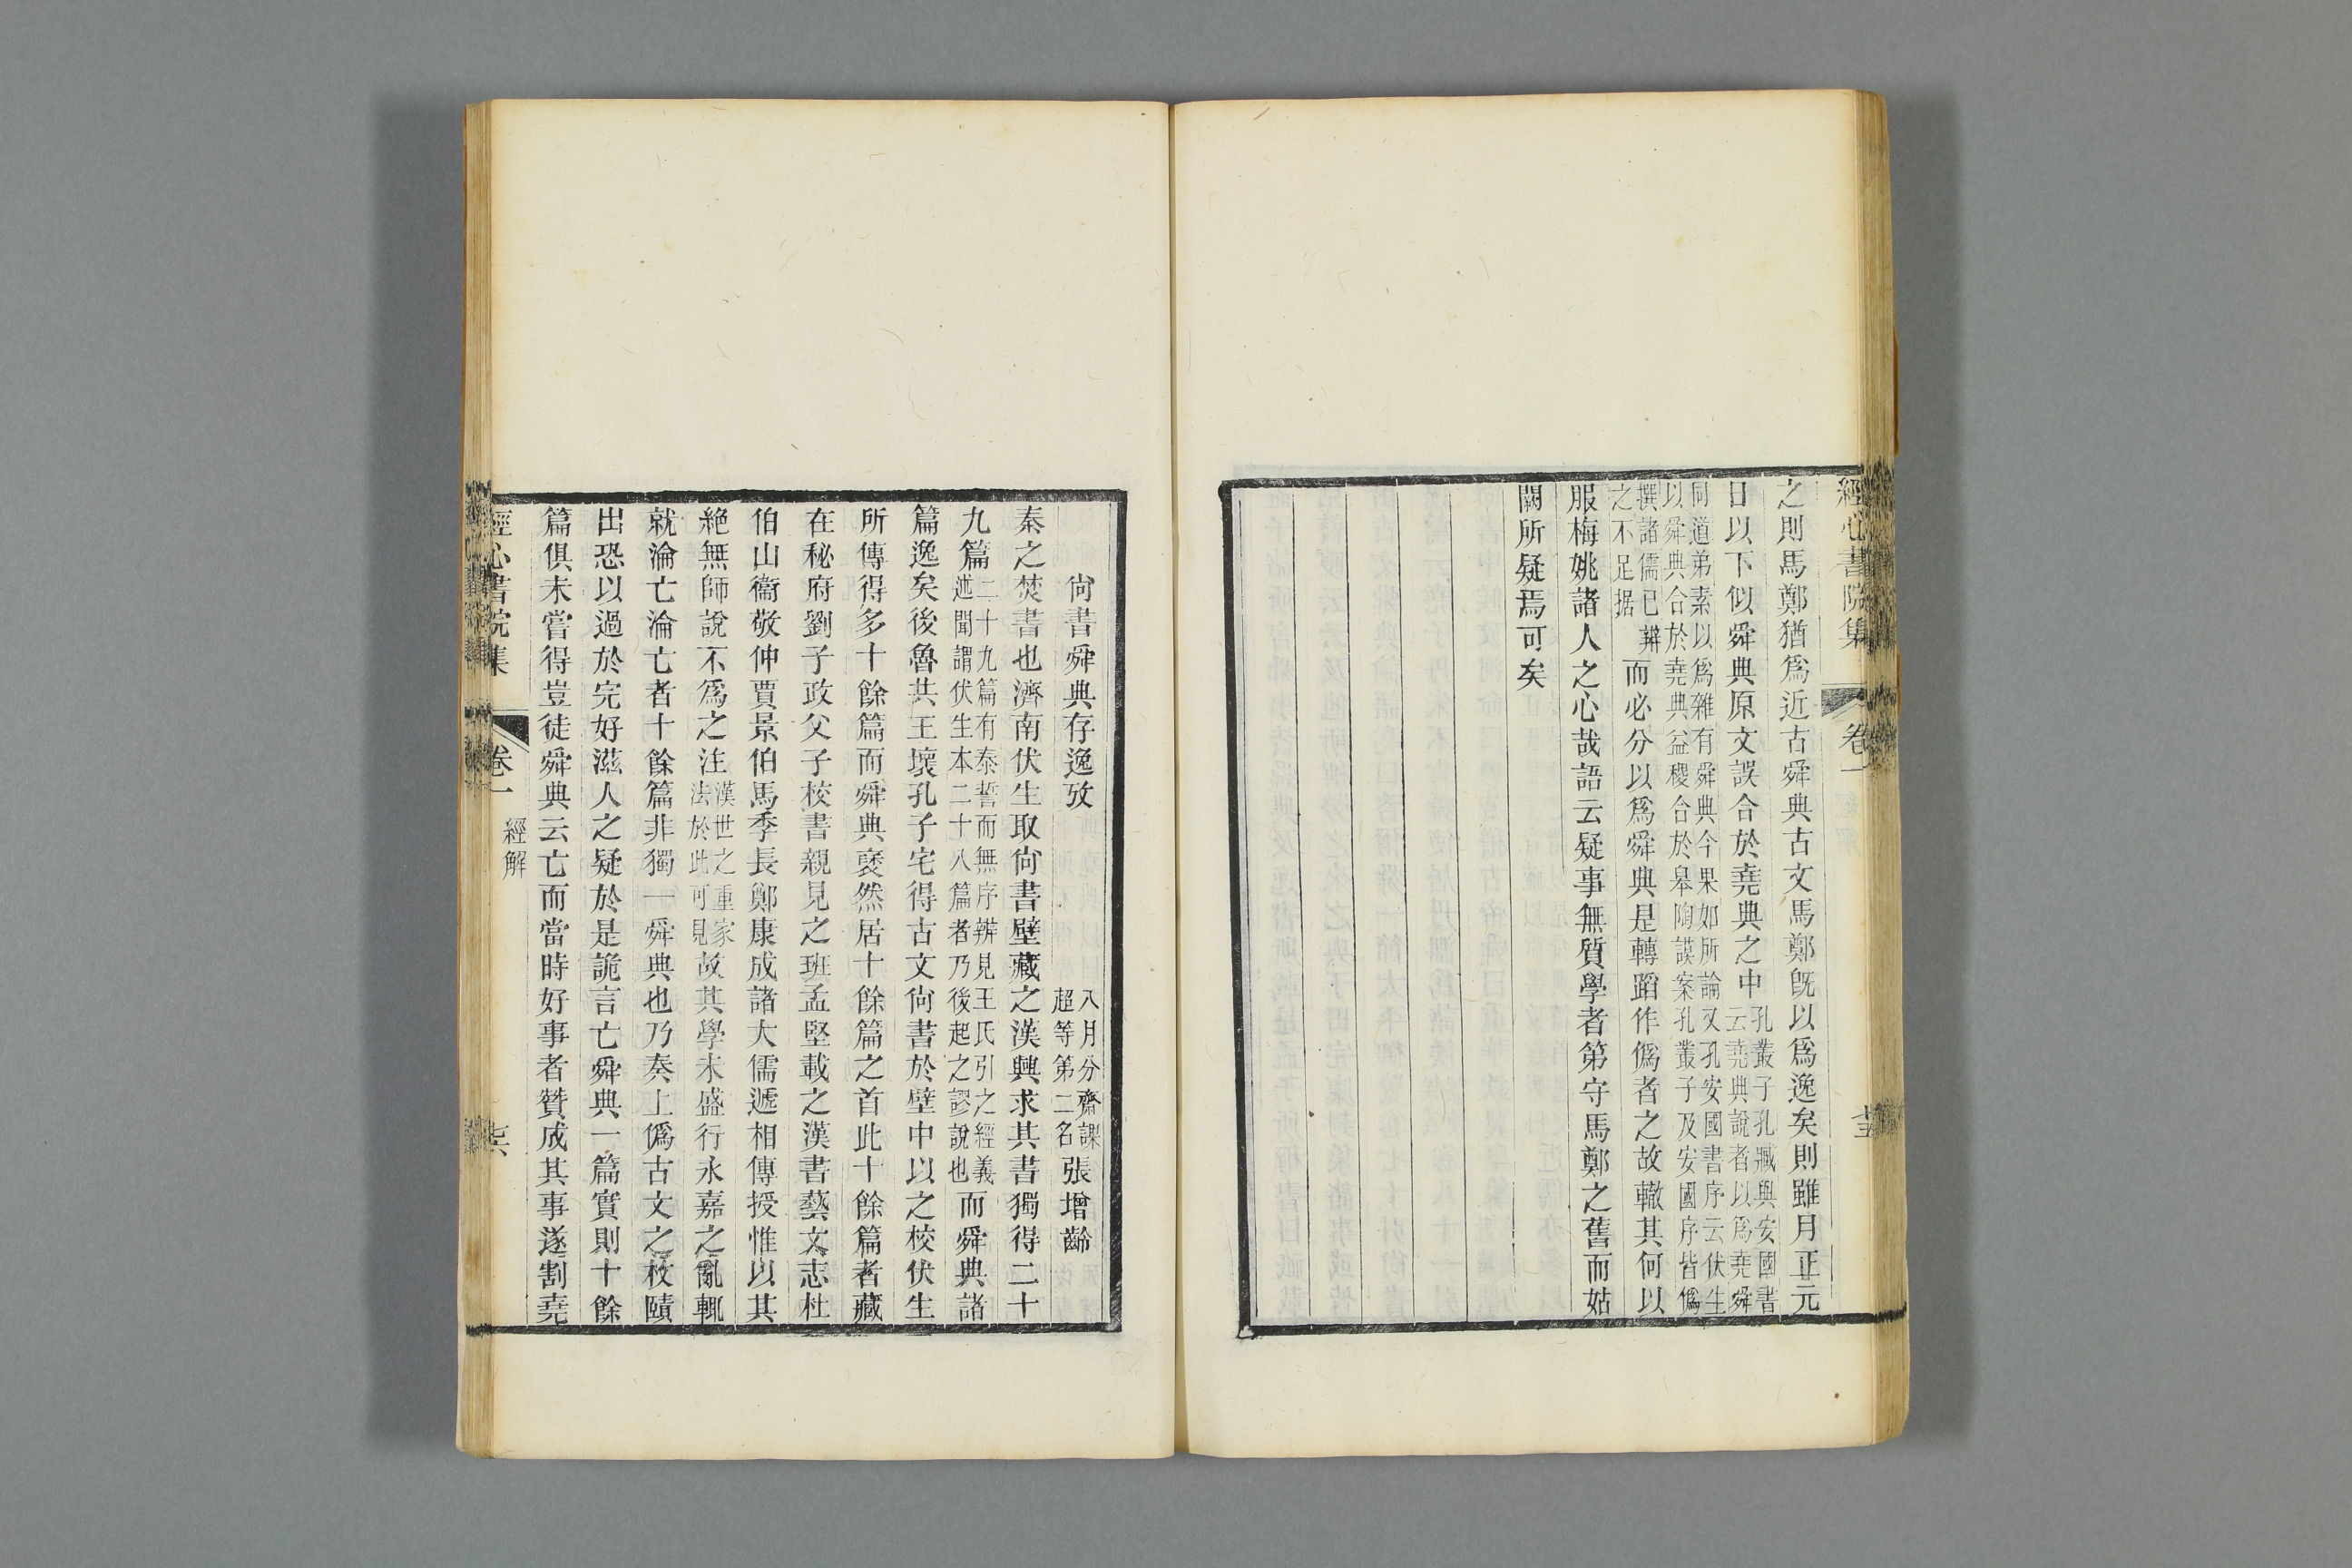 經心書院集 卷一 
之則馬鄭猶爲近古舜典古文馬鄭旣以爲逸矣則雖月正元
日以下似舜典原文誤合於堯典之中孔叢子孔臧與安國書云堯典說者以爲堯舜
同道弟素以爲雜有舜典今果如所論又孔安國書序云伏生以舜典合於堯典益稷合於皋陶謨案孔叢子及安國序皆僞
撰諸儒已辨之不足据而必分以爲舜典是轉蹈作僞者之故轍其何以
服梅姚諸人之心哉語云疑事無質學者第守馬鄭之舊而姑
闕所疑焉可矣
尙書舜典存逸攷 八月分齋課超等第二名張增齡
秦之焚書也濟南伏生取尙書壁藏之漢興求其書獨得二十
九篇二十九篇有泰誓而無序辨見王氏引之經義述聞謂伏生本二十八篇者乃後起之謬說也而舜典諸
篇逸矣後魯共王壞孔子宅得古文尙書於壁中以之校伏生
所傳得多十餘篇而舜典裒然居十餘篇之首此十餘篇者藏
在秘府劉子政父子校書親見之班孟堅載之漢書藝文志杜
伯山衞敬仲賈景伯馬季長鄭康成諸大儒遞相傳授惟以其
絕無師說不爲之注漢世之重家法於此可見故其學未盛行永嘉之亂輒
就淪亡淪亡者十餘篇非獨一舜典也乃奏上僞古文之枚賾
出恐以過於完好滋人之疑於是詭言亡舜典一篇實則十餘
篇俱未嘗得豈徒舜典云亡而當時好事者贊成其事遂割堯
經心書院集 卷一 經解